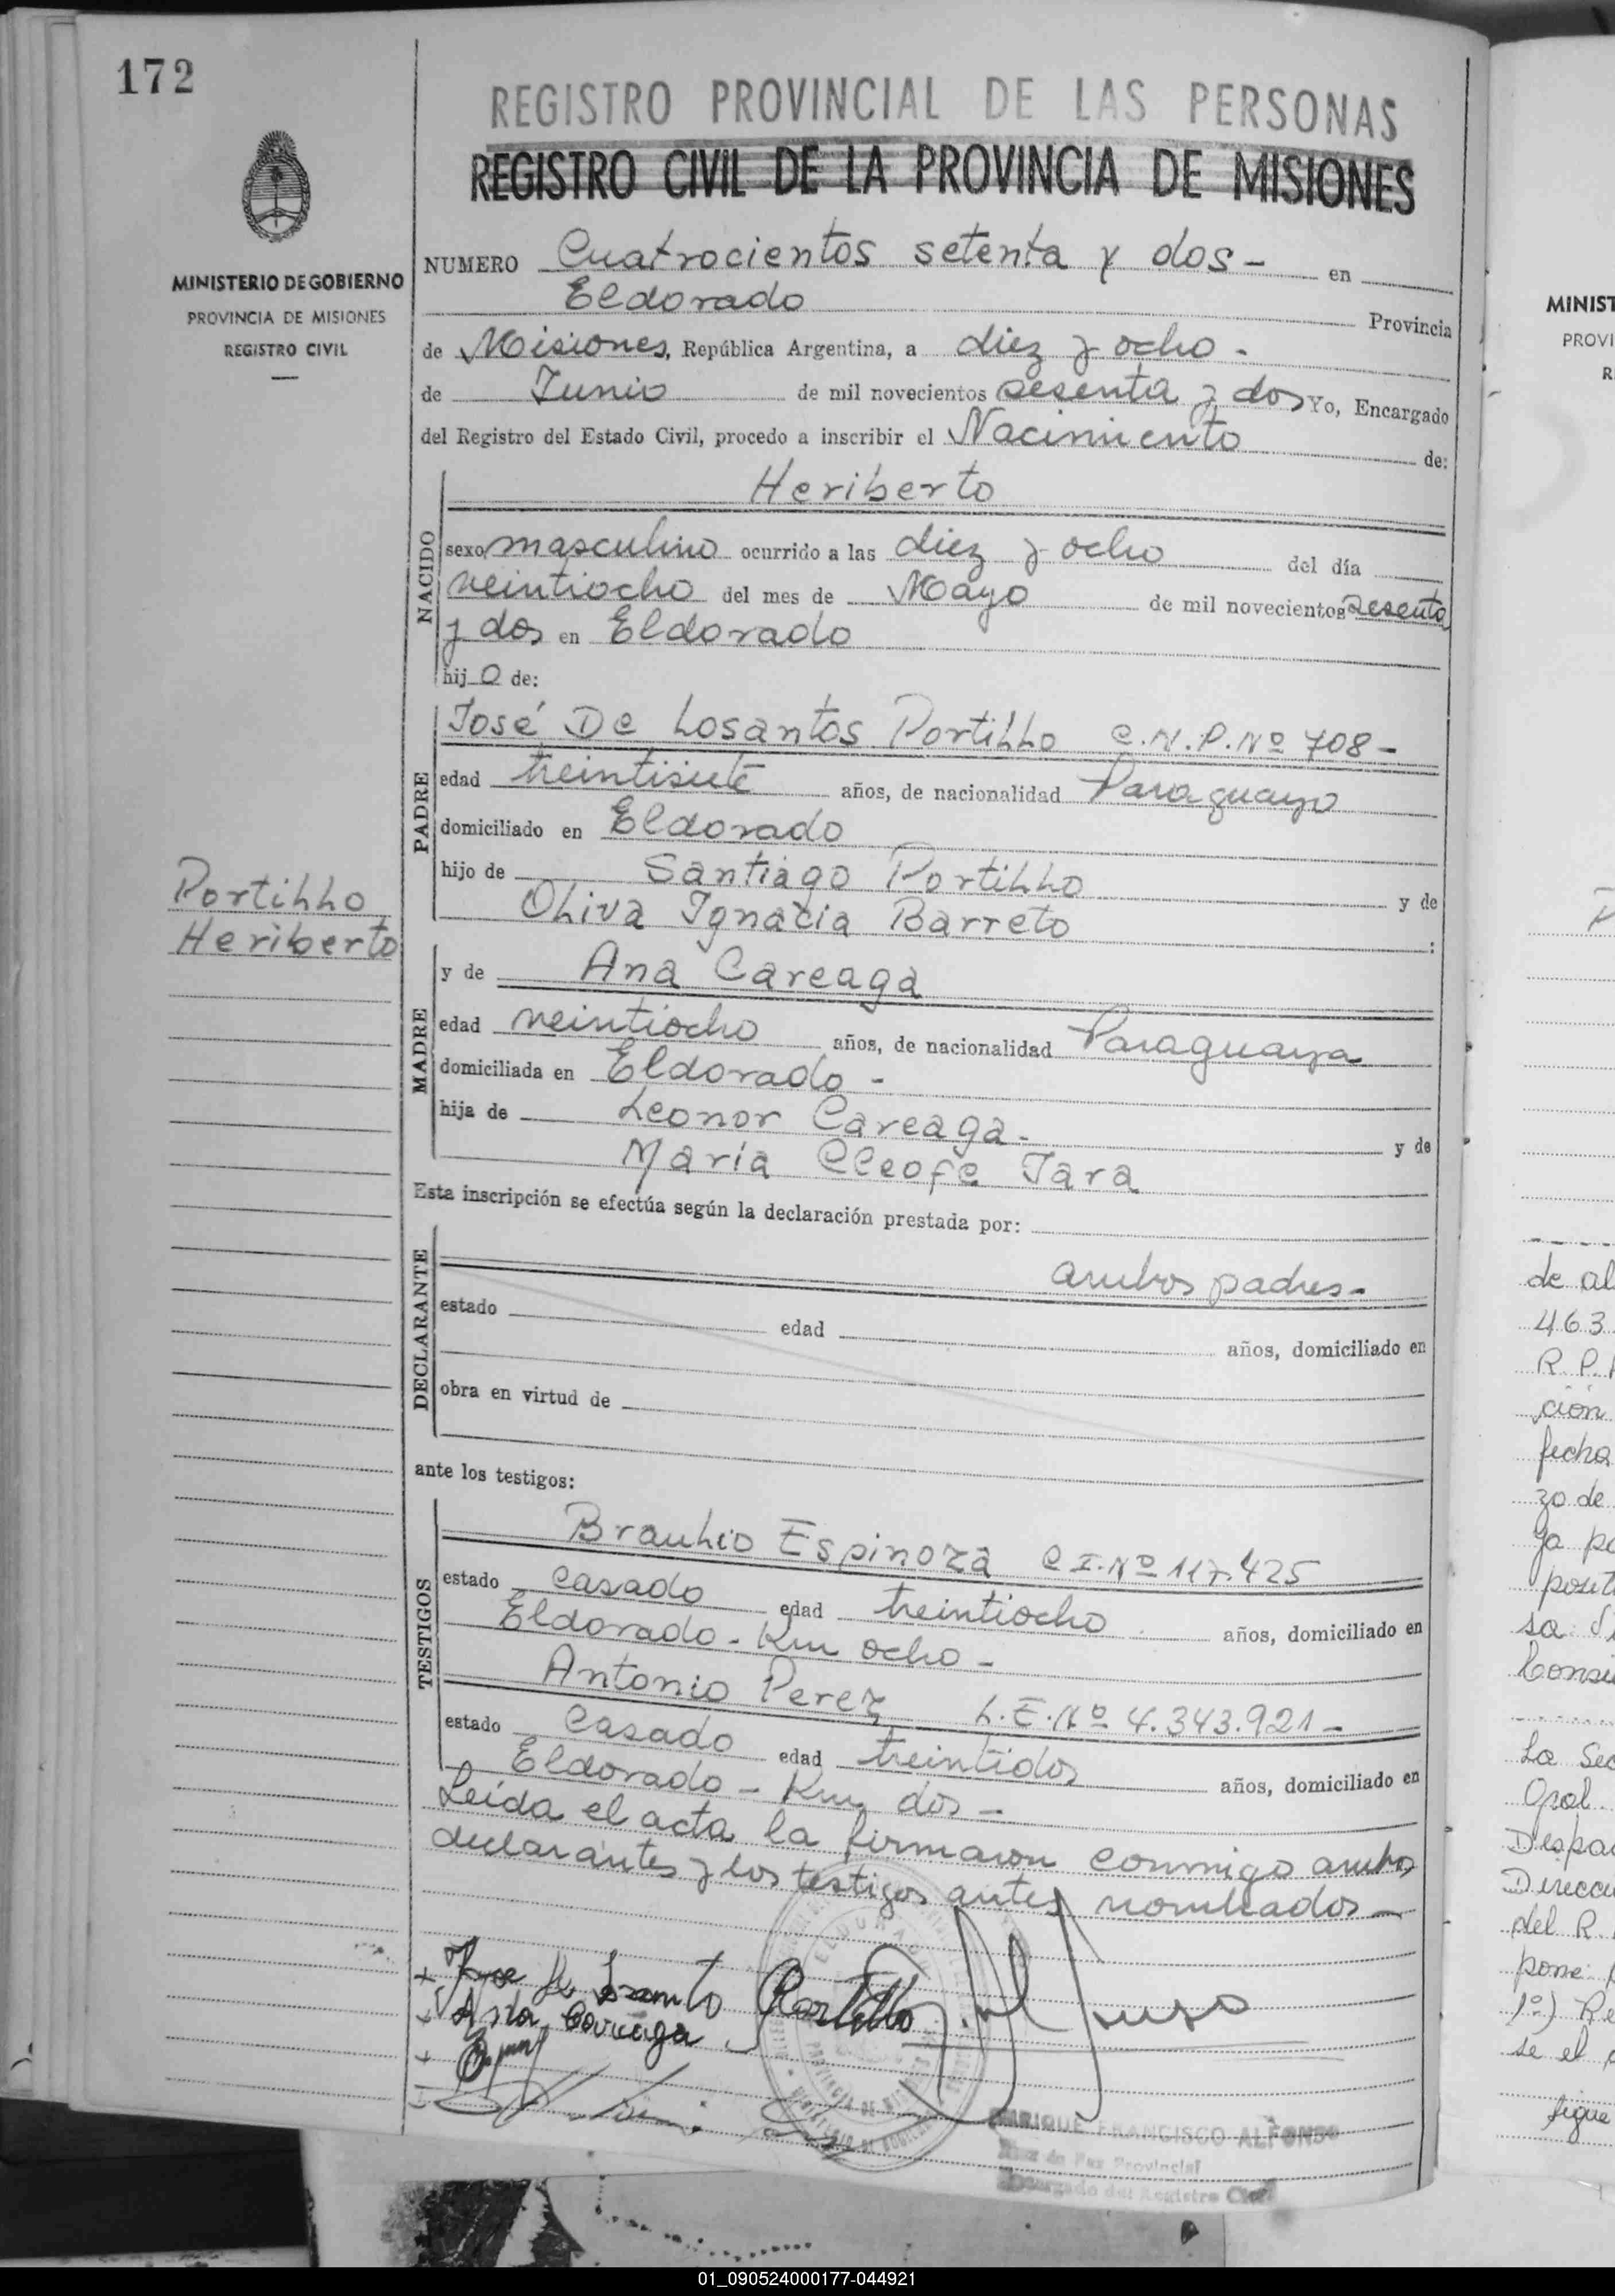 172
REGISTRO PROVINCIAL DE LAS PERSONAS
REGISTRO CIVIL DE LA PROVINCIA DE MISIONES
MINISTERIO DE GOBIERNO
PROVINCIA DE MISIONES
REGISTRO CIVIL
NUMERO Cuatrocientos setenta y dos - en
Eldorado Provincia
de Misiones, República Argentina, a diez y ocho -
de Junio de mil novecientos sesenta y dos Yo, Encargado
del Registro del Estado Civil, procedo a inscribir el Nacimiento de:
NACIDO
Heriberto
sexo masculino ocurrido a las diez y ocho del día
veintiocho del mes de Mayo de mil novecientos sesenta
y dos en Eldorado
hijo de:
PADRE
José De Losantos Portillo C.N.P.Nº 708 -
edad treintisiete años, de nacionalidad Paraguayo
domiciliado en Eldorado
hijo de Santiago Portillo y de
Oliva Ignacia Barreto :
Portillo
Heriberto
MADRE
y de Ana Careaga
edad veintiocho años, de nacionalidad Paraguaya
domiciliada en Eldorado -
hija de Leonor Careaga - y de
María Cleofe Jara
Esta inscripción se efectúa según la declaración prestada por:
DECLARANTE
ambos padres -
estado edad años, domiciliado en
obra en virtud de
ante los testigos:
TESTIGOS
Braulio Espinoza C.I.Nº 117.425
estado casado edad treintiocho años, domiciliado en
Eldorado - Km ocho -
Antonio Perez L.E.Nº 4.343.921 -
estado casado edad treintidos años, domiciliado en
Eldorado - Km dos -
Leída el acta la firmaron conmigo ambos
declarantes y los testigos antes nombrados -
Portillo
Ana Careaga
ELDORADO
PROVINCIA DE MISIONES
ENRIQUE FRANCISCO ALFONSO
Juez de Paz Provincial
Encargado del Registro Civil
MINIST
PROVI
R
de al
463
R.P.
ción
fecha
zo de
ya po
posit
sa
Consi
La Sec
Gral.
Despa
Direcci
del R.
pone
1º) Re
se el
sigue
01_090524000177-044921